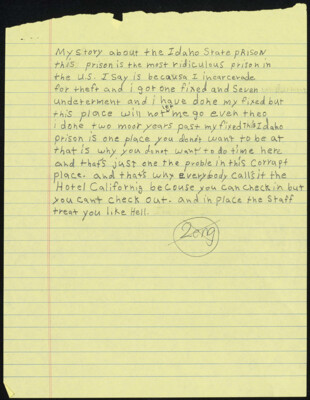 My story about the Idaho State prison
this prison is the most ridiculous prison in
the U.S. I say is becausa I incarcerade
for theft and i got one fixed and Seven
underterment and i have done my fixed but
this place will not let me go even theo
i done two moor years past my fixed this Idaho
prison is one place you donot want to be at
that is why you donot want to do time here
and that's just one the proble in this Corrapt
place. and that's why everybody calls it the
Hotel California because you can check in but
you can't check out. and in place the Staff
treat you like Hell.
2019